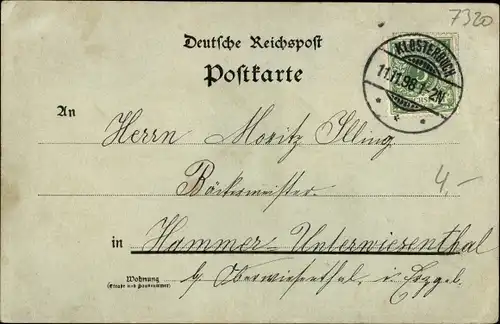 7320
Deutsche Reichspost
Postkarte
KLOSTERBUCH
11.11.98.1-2N
5
An
Herrn Moritz Illing
Bäckermeister
4,-
in Hammer-Unterwiesenthal
Wohnung
(Straße und Hausnummer)
b/ Oberwiesenthal, i. Erzgeb.